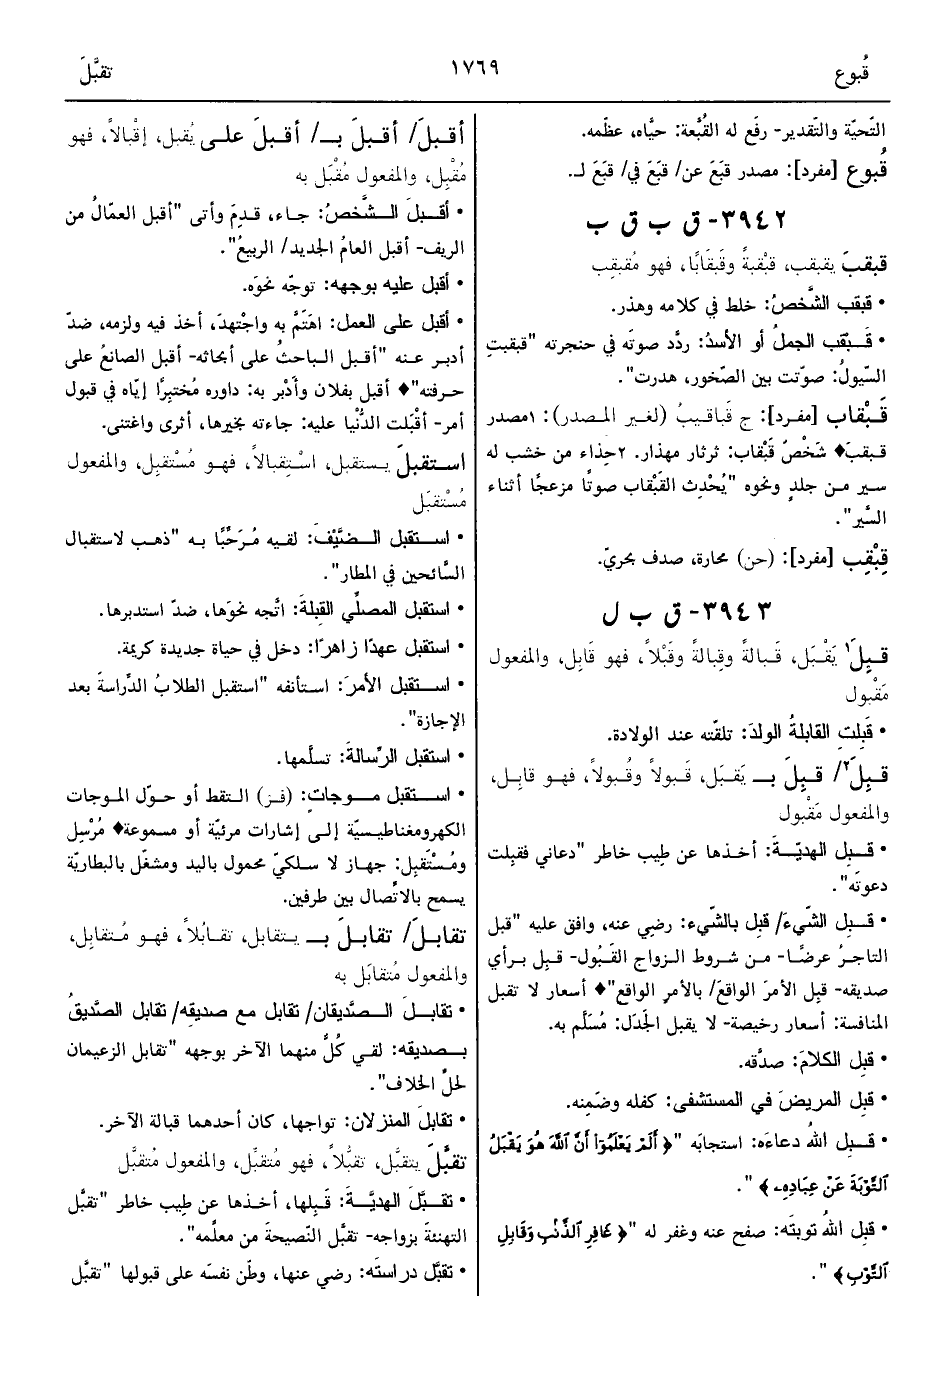 قُبوع
١٧٦٩
تقبَّلَ
التَّحيّة والتَّقدير- رفَع له القُبَّعة: حيَّاه، عظّمه.
قُبوع [مفرد]: مصدر قبَعَ عن/ قبَعَ في/ قبَعَ لـ.
٣٩٤٢- ق ب ق ب
قبقبَ يقبقب، قبْقبةً وقَبقابًا، فهو مُقبقِب
• قبقب الشَّخصُ: خلط في كلامه وهذر.
• قَبقب الجملُ أو الأسدُ: ردَّد صوتَه في حنجرته "قبقبتِ
السّيولُ: صوّتت بين الصّخور، هدرت".
قَبْقاب [مفرد]: ج قَباقيبُ (لغير المصدر): ١مصدر
قبقبَ♦ شَخْصٌ قَبْقاب: ثرثار مهذار. ٢حِذاء من خشب له
سير من جلدٍ ونحوه "يُحْدِث القَبْقاب صوتًا مزعجًا أثناء
السَّير".
قِبْقِب [مفرد]: (حن) محارة، صدف بحريّ.
٣٩٤٣- ق ب ل
قبِلَ١ يَقْبَل، قَبالةً وقِبالةً وقَبْلاً، فهو قابِل، والمفعول
مَقْبول
• قَبِلتِ القابلةُ الولدَ: تلقّته عند الولادة.
قبِلَ٢/ قبِلَ بـ يَقبَل، قَبولاً وقُبولاً، فهو قابِل،
والمفعول مَقْبول
• قبِل الهديّةَ: أخذها عن طِيب خاطر "دعاني فقبِلت
دعوتَه".
• قبِل الشَّيءَ/ قبِل بالشَّيء: رضِي عنه، وافق عليه "قبل
التاجرُ عرضًا- من شروط الزواج القَبُول- قبِل برأي
صديقه- قبِل الأمرَ الواقعَ/ بالأمرِ الواقع"♦ أسعار لا تقبل
المنافسة: أسعار رخيصة- لا يقبل الجَدَل: مُسَلَّم به.
• قبِل الكلامَ: صدَّقه.
• قبِل المريضَ في المستشفى: كفله وضَمِنه.
• قبِل اللهُ دعاءَه: استجابَه "﴿ أَلَمْ يَعْلَمُوٓا۟ أَنَّ ٱللَّهَ هُوَ يَقْبَلُ
ٱلتَّوْبَةَ عَنْ عِبَادِهِۦ ﴾ ".
• قبِل اللهُ توبتَه: صفح عنه وغفر له "﴿ غَافِرِ ٱلذَّنۢبِ وَقَابِلِ
ٱلتَّوْبِ﴾ ".
أقبلَ/ أقبلَ بـ/ أقبلَ على يُقبل، إقْبالاً، فهو
مُقْبِل، والمفعول مُقْبَل به
• أقبلَ الشَّخصُ: جاء، قدِمَ وأتى "أقبل العمّالُ من
الريف- أقبل العامُ الجديد/ الربيعُ".
• أقبل عليه بوجهه: توجّه نحوَه.
• أقبل على العمل: اهتَمَّ به واجْتهدَ، أخذ فيه ولزمه، ضدّ
أدبر عنه "أقبل الباحثُ على أبحاثه- أقبل الصانعُ على
حرفته"♦ أقبل بفلان وأدْبر به: داوره مُختبِرًا إيّاه في قبول
أمر- أقْبَلت الدُّنْيا عليه: جاءته بخيرها، أثرى واغتنى.
استقبلَ يستقبل، استِقبالاً، فهو مُسْتقبِل، والمفعول
مُسْتقبَل
• استقبل الضَّيْفَ: لقيه مُرَحِّبًا به "ذهب لاستقبال
السَّائحين في المطار".
• استقبل المصلِّي القبلةَ: اتَّجه نحوَها، ضدّ استدبرها.
• استقبل عهدًا زاهرًا: دخل في حياة جديدة كريمة.
• استقبل الأمرَ: استأنفه "استقبل الطلابُ الدِّراسةَ بعد
الإجازة".
• استقبل الرِّسالةَ: تسلَّمها.
• استقبل موجاتٍ: (فز) التقط أو حوّل الموجات
الكهرومغناطيسيّة إلى إشارات مرئيّة أو مسموعة♦ مُرْسِل
ومُسْتَقبِل: جهاز لا سلكيّ محمول باليد ومشغّل بالبطاريّة
يسمح بالاتِّصال بين طرفين.
تقابلَ/ تقابلَ بـ يتقابل، تقابُلاً، فهو مُتقابِل،
والمفعول مُتقابَل به
• تقابلَ الصَّديقان/ تقابل مع صديقِه/ تقابل الصَّديقُ
بصديقه: لقي كُلٌّ منهما الآخر بوجهه "تقابل الزعيمان
لحلِّ الخلاف".
• تقابلَ المنزلان: تواجها، كان أحدهما قبالة الآخر.
تقبَّلَ يتقبَّل، تقبُّلاً، فهو مُتقبِّل، والمفعول مُتقبَّل
• تقبَّل الهديَّةَ: قَبِلها، أخذها عن طِيب خاطر "تقبَّل
التهنئةَ بزواجه- تقبَّل النَّصيحةَ من معلِّمه".
• تقبَّل دراستَه: رضِي عنها، وطّن نفسَه على قبولها "تقبَّل